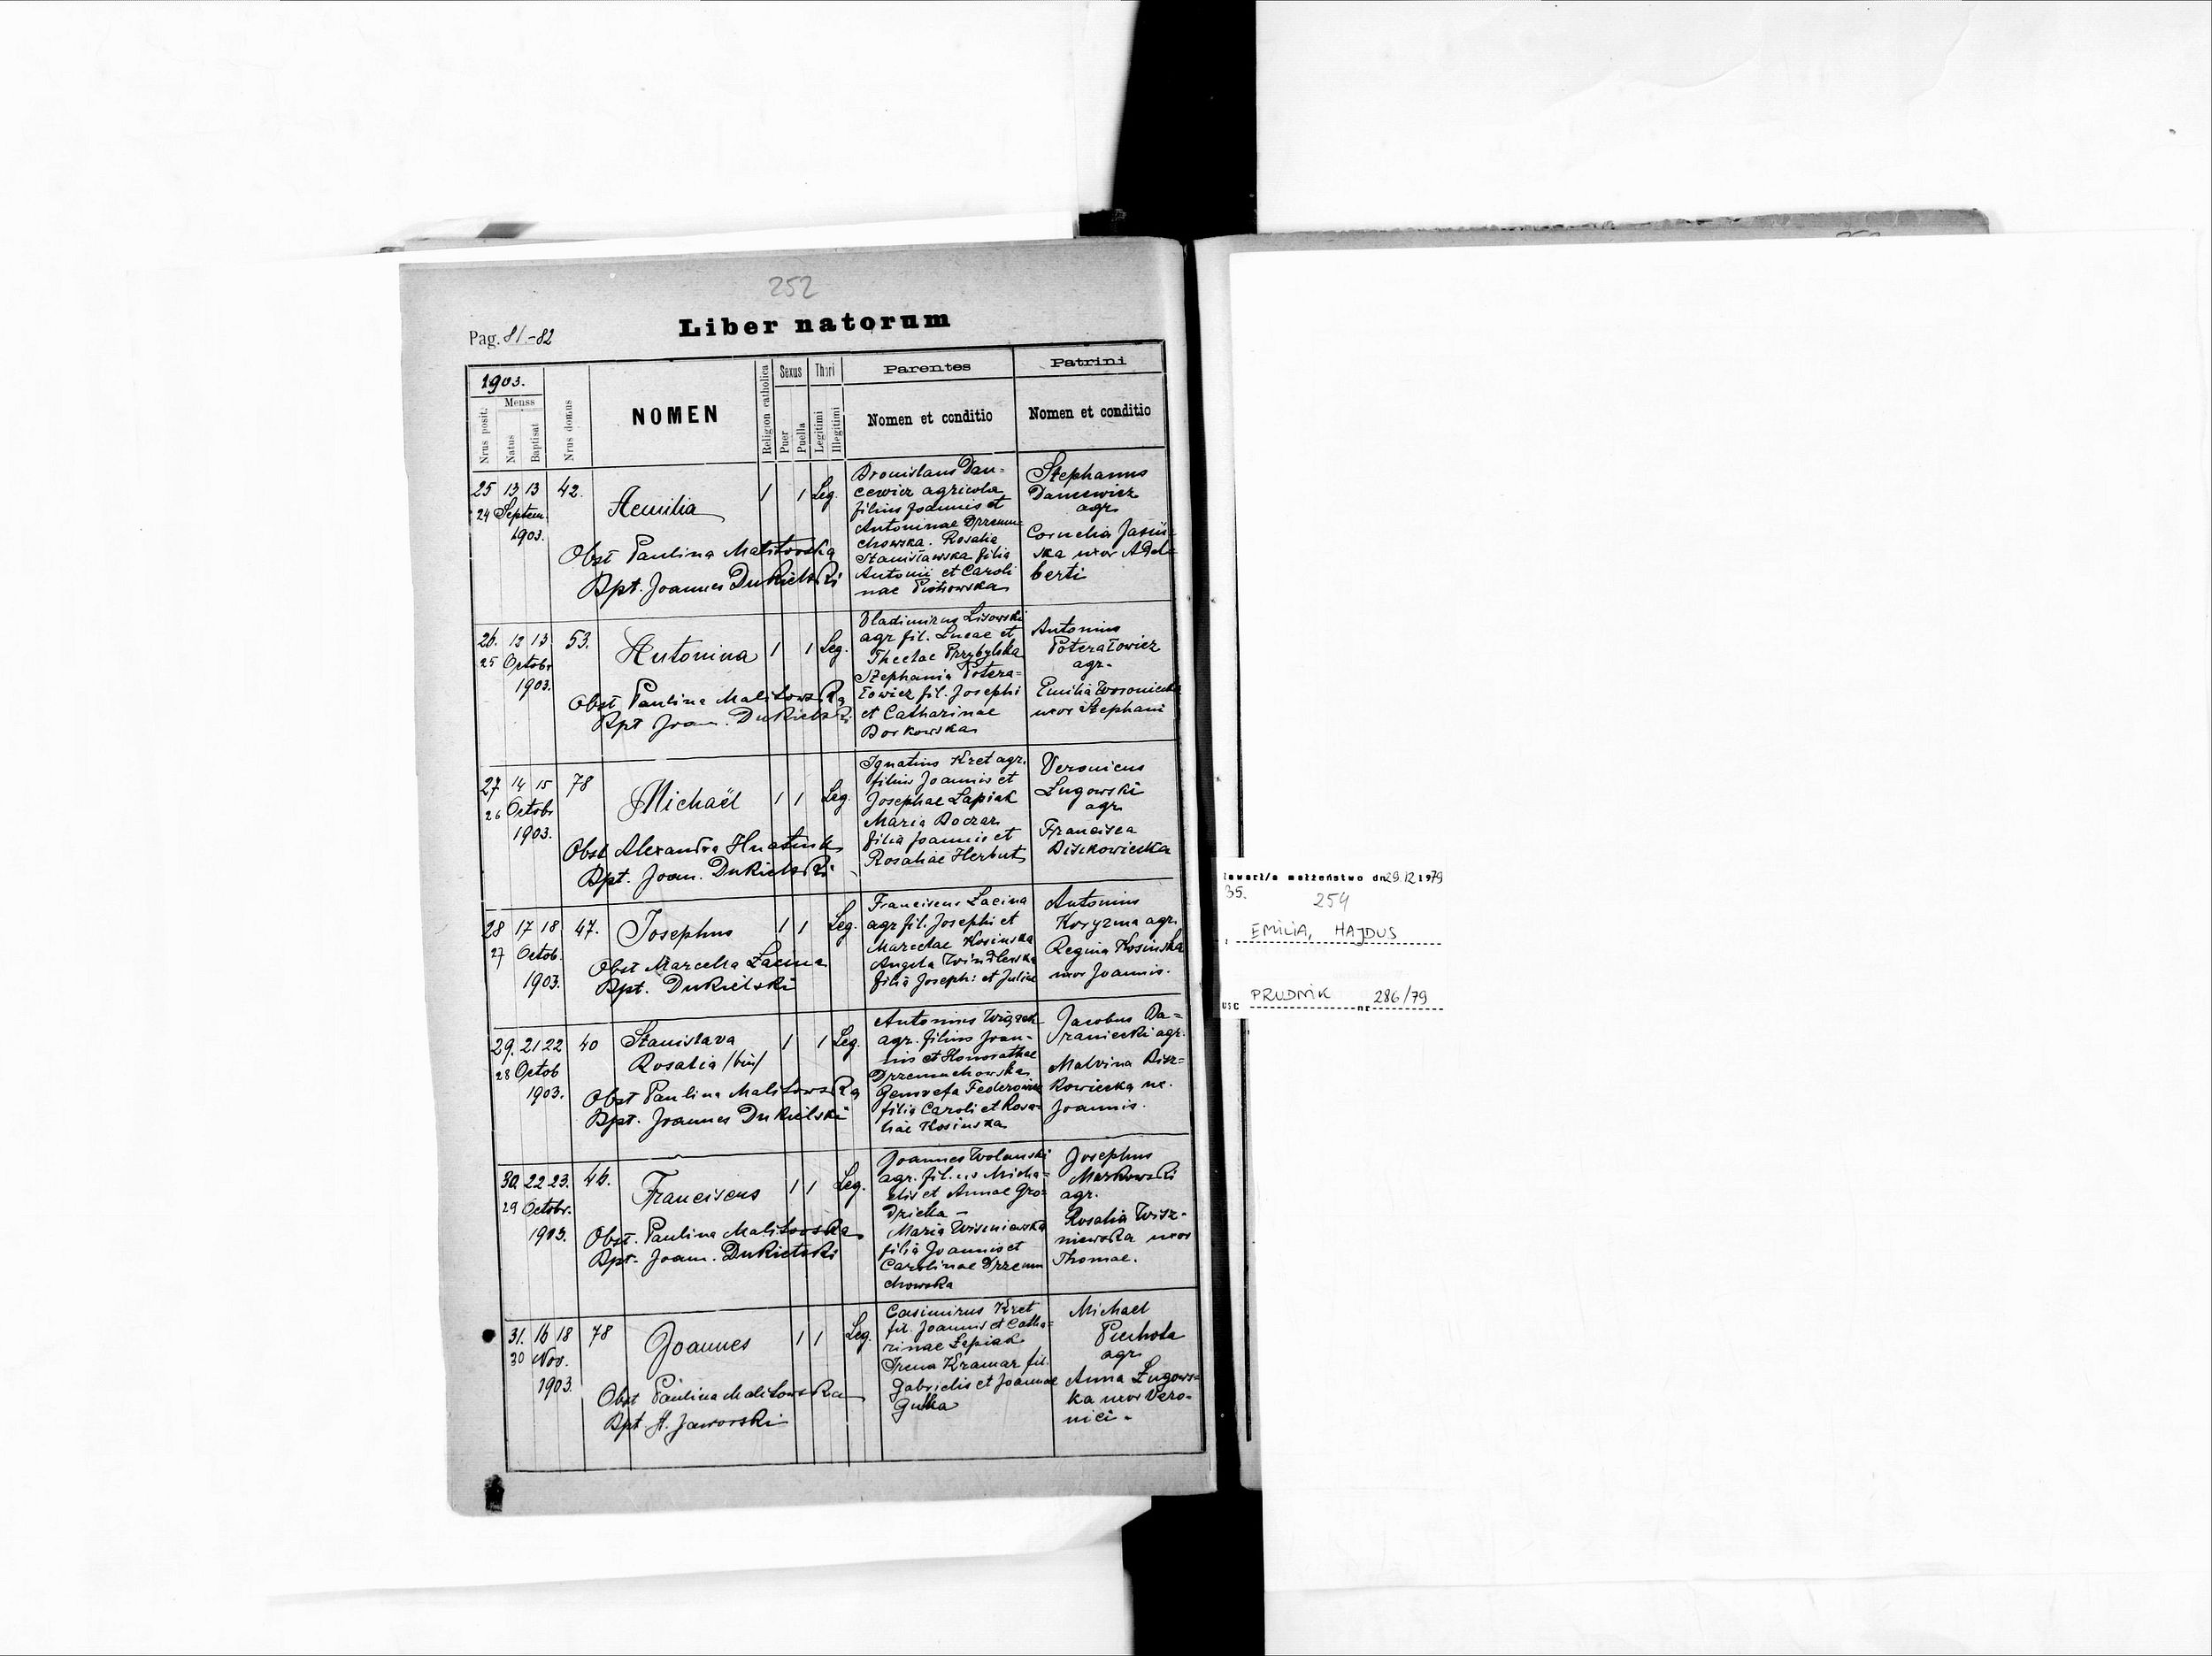 252
Pag. 81.-82
Liber natorum
1903.
Nrus posit.
Menss
Natus
Baptisat
Nrus domus
NOMEN
Religion catholica
Sexus
Puer
Puella
Thori
Legitimi
Illegitimi
Parentes
Nomen et conditio
Patrini
Nomen et conditio
25 13 13 42.
24 Septem.
1903.
Aemilia
1 1 Leg.
Obst Paulina Malitowska
Bpt. Joannes Dukielski
Bronislaus Dan-
cewicz agricola
filius Joannis et
Antoninae Drzemu-
chowska. Rosalia
Stanisławska filia
Antonii et Caroli
nae Piotrowska
Stephanus
Dancewicz
agr.
Cornelia Jasiń-
ska uxor Adal-
berti
26. 12 13 53.
25 Octobr
1903.
Antonina
1 1 Leg.
Obst Paulina Malitowska
Bpt Joan. Dukielski
Vladimirus Lisowski
agr fil. Lucae et
Theclae Przybylska
Stephania Potera-
łowicz fil. Josephi
et Catharinae
Borkowska
Antonius
Poterałowicz
agr.
Emilia Woroniecka
uxor Stephani
27 14 15 78
26 Octobr
1903.
Michaël
1 1 Leg.
Obst Alexandra Hnatiuk
Bpt. Joan. Dukielski
Ignatius Kret agr.
filius Joannis et
Josephae Łapiak
Maria Boczar
filia Joannis et
Rosaliae Herbut
Veronicus
Ługowski
agr.
Francisca
28 17 18 47.
27 Octob.
1903.
Josephus
1 1 Leg.
Obst Marcella Łacina
Bpt. Dukielski
Franciscus Łacina
agr fil. Josephi et
Marcelae Kosinska
Angela
filia Joseph: et Juliae
Antonius
Koryzma agr.
Regina Kosinska
uxor Joannis.
29. 21 22 40
28 Octob
1903.
Stanislava
Rosalia /bin/
1 1 Leg.
Obst Paulina Malitowska
Bpt. Joannes Dukielski
Antonius Wiącek
agr. filius Joan-
nis et Honorathae
Drzemuchowska.
Genovefa Federowicz
filia Caroli et Rosa-
liae Kosinska
Jacobus Ba-
raniecki agr.
Malvina Bisz-
kowiecka ux.
Joannis.
30. 22 23. 46.
29 Octobr.
1903.
Franciscus
1 1 Leg.
Obst. Paulina Malitowska
Bpt. Joan. Dukielski
Joannes Wolanski
agr. filius Micha-
elis et Annae Gro-
dzicka -
Maria Wiszniewska
filia Joannis et
Carolinae Drzemu
chowska
Josephus
Markowski
agr.
Rosalia Wisz-
niewska uxor
Thomae.
31. 16 18 78
30 Nov.
1903.
Joannes
1 1 Leg.
Obst Paulina Malitowska
Bpt. A. Jaworski
Casimirus Kret
fil. Joannis et Catha-
rinae Łepiak
Irena Kramar fil.
Gabrielis et Joannae
Michael
Piechota
agr.
Anna Ługows-
ka uxor Vero-
nici -
zawarł/a małżeństwo dn 29.12 1979
35.
254
EMILIA, HAJDUS
USC PRUDNIK nr 286/79